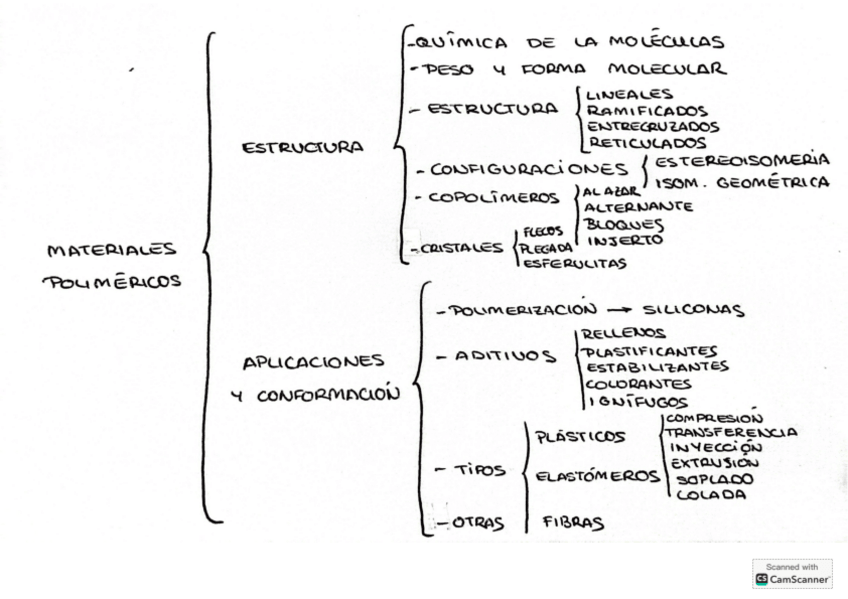 -QUÍMICA DE LA MOLÉCULAS
-PESO Y FORMA MOLECULAR
- ESTRUCTURA
LINEALES
RAMIFICADOS
ENTRECRUZADOS
RETICULADOS
ESTRUCTURA
- CONFIGURACIONES
ESTEREOISOMERÍA
ISOM. GEOMÉTRICA
- COPOLÍMEROS
AL AZAR
ALTERNANTE
BLOQUES
INJERTO
-CRISTALES
FLECOS
PLEGADA
ESFERULITAS
MATERIALES
POLIMÉRICOS
-POLIMERIZACIÓN → SILICONAS
- ADITIVOS
RELLENOS
PLASTIFICANTES
ESTABILIZANTES
COLORANTES
IGNÍFUGOS
APLICACIONES
Y CONFORMACIÓN
- TIPOS
PLÁSTICOS
ELASTÓMEROS
COMPRESIÓN
TRANSFERENCIA
INYECCIÓN
EXTRUSIÓN
SOPLADO
COLADA
-OTRAS
FIBRAS
Scanned with
CS CamScanner